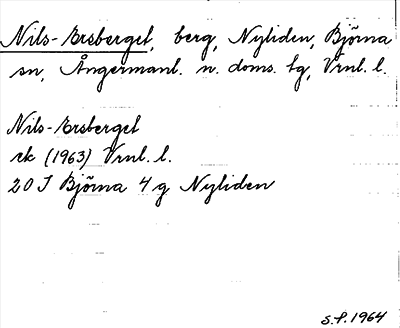 Nils-Ersberget, berg, Nyliden, Björna
sn, Ångermanl. n. doms. tg, Vrnl. l.
Nils-Ersberget
rk (1963) Vrnl. l.
20 J Björna 4 g Nyliden
S.P. 1964